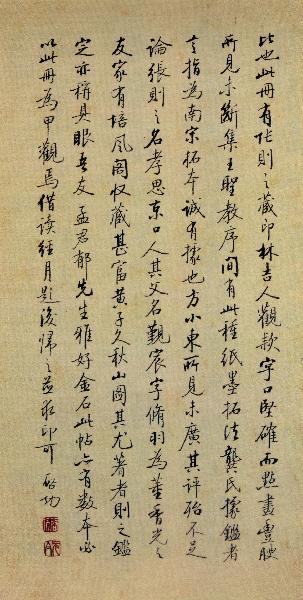 比也此册有张则之藏印林吉人觀款字口堅確而點畫豐腴
所見未斷集王聖教序間有此種紙墨拓法龔氏據鑑者
言指為南宋拓本誠有據也方小東所見未廣其評殆不足
論張則之名孝思京口人其父名觀宸字脩羽為董香光之
友家有培風閣收藏甚富黄子久秋山圖其尤著者則之鑑
定亦稱具眼吾友孟君郁先生雅好金石此帖亦有数本必
以此冊為甲觀焉借读経月題後歸之並求印可 啟功